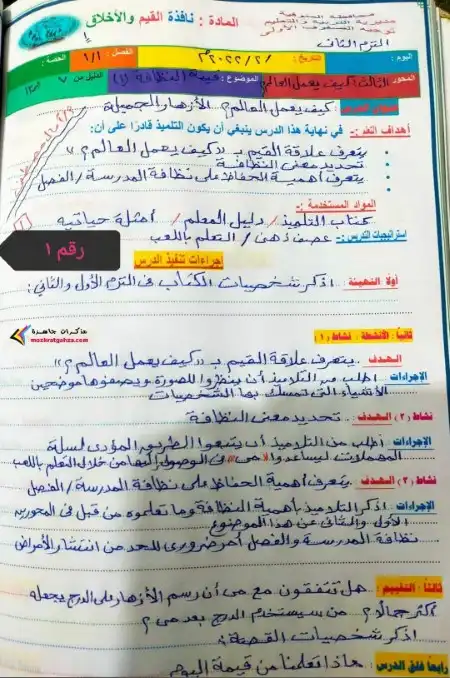 محافظة المنوفية
مديرية التربية والتعليم
توجيه الصفوف الأولى
المادة : نافذة القيم والأخلاق
الترم الثاني
اليوم : التاريخ : / ٢ / ٢٠٢٢م الفصل : ١/١ الحصة :
المحور الثالث كيف يعمل العالم؟ الموضوع : قيمة النظافة (١)
كيف يعمل العالم؟ الأزهار الجميلة
أهداف الدرس :- في نهاية هذا الدرس ينبغي أن يكون التلميذ قادرًا على أن:
يتعرف علاقة القيم بـ "كيف يعمل العالم؟"
تحديد معنى النظافة
يتعرف أهمية الحفاظ على نظافة المدرسة / الفصل
المواد المستخدمة :-
كتاب التلميذ / دليل المعلم / أمثلة حياتية
استراتيجيات الدرس :- عصف ذهني / التعلم باللعب
رقم ١
إجراءات تنفيذ الدرس
أولا التهيئة : اذكر شخصيات الكتاب في الترم الأول والثاني :
مذكرات جاهزة
mozkratgahza.com
ثانيًا: الأنشطة : نشاط (١)
الهدف . يتعرف علاقة القيم بـ "كيف يعمل العالم؟"
الإجراءات . اطلب من التلاميذ أن ينظروا للصورة ويصفوها موضحين
الأشياء التي تمسك بها الشخصيات
نشاط (٢) الهدف : . تحديد معنى النظافة
الإجراءات . اطلب من التلاميذ أن يتتبعوا الطريق المؤدي لسلة
المهملات ليساعدوا "مى" في الوصول إليها من خلال التعلم باللعب
نشاط (٣) الهدف : يتعرف أهمية الحفاظ على نظافة المدرسة / الفصل
الإجراءات . اذكر التلاميذ بأهمية النظافة وما تعلموه من قبل في المحورين
الأول والثاني عن هذا الموضوع
نظافة المدرسة والفصل أمر ضروري للحد من انتشار الأمراض
ثالثا : التقييم : هل تتفقون مع مى أن رسم الأزهار على الدرج يجعله
أكثر جمالاً؟ من سيستخدم الدرج بعد مى؟
اذكر شخصيات القصة ؟
رابعا غلق الدرس : ماذا تعلمنا من قيمة اليوم